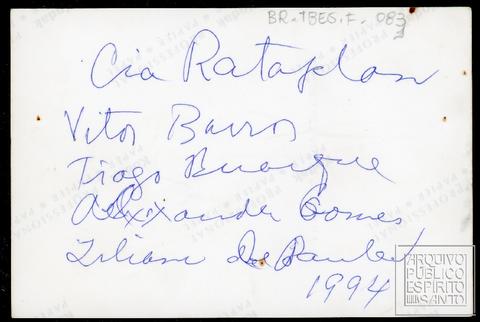 BR.IBEG.F. 083
Cia Rataplan
Vitor Barros
Tiago Buarque
Alexxander Gomes
Liliam De
1994
ARQUIVO
PÚBLICO
ESPÍRITO
SANTO